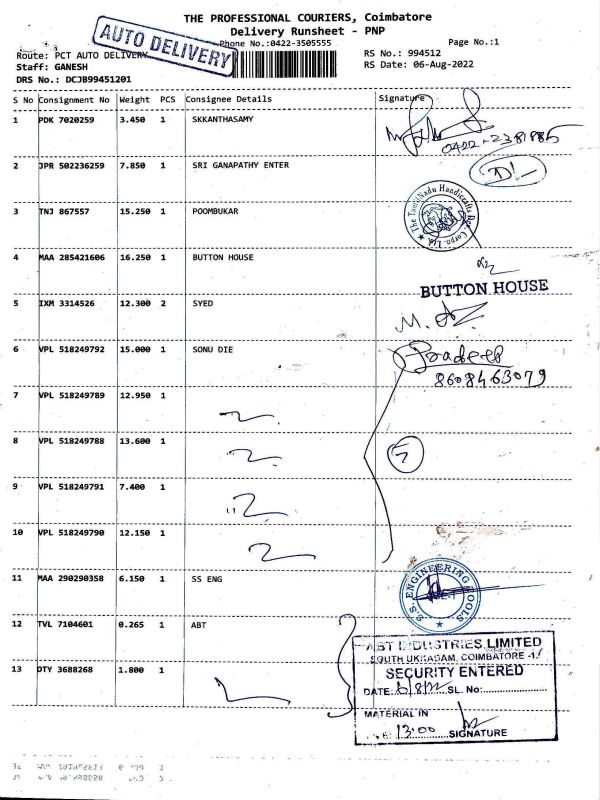 THE PROFESSIONAL COURIERS, Coimbatore
Delivery Runsheet - PNP
AUTO DELIVERY
Phone No.:0422-3505555
Page No.:1
Route: PCT AUTO DELIVERY
RS No.: 994512
Staff: GANESH
RS Date: 06-Aug-2022
DRS No.: DCJB99451201
S No Consignment No Weight PCS Consignee Details Signature
1 PDK 7020259 3.450 1 SKKANTHASAMY
0422-2381885
2 JPR 502236259 7.850 1 SRI GANAPATHY ENTER
3 TNJ 867557 15.250 1 POOMBUKAR
The TamilNadu Handicrafts Dev. Corpn. Ltd.
4 MAA 285421606 16.250 1 BUTTON HOUSE
BUTTON HOUSE
5 IXM 3314526 12.300 2 SYED
6 VPL 518249792 15.000 1 SONU DIE
Pradeep
8608463079
7 VPL 518249789 12.950 1
8 VPL 518249788 13.600 1
5
9 VPL 518249791 7.400 1
10 VPL 518249790 12.150 1
11 MAA 290290358 6.150 1 SS ENG
S.S. ENGINEERING TOOLS
12 TVL 7104601 0.265 1 ABT
13 DTY 3688268 1.800 1
ABT INDUSTRIES LIMITED
SOUTH UKKADAM, COIMBATORE -1
SECURITY ENTERED
DATE: 6/8/22 SL. No:
MATERIAL IN
13:00 SIGNATURE